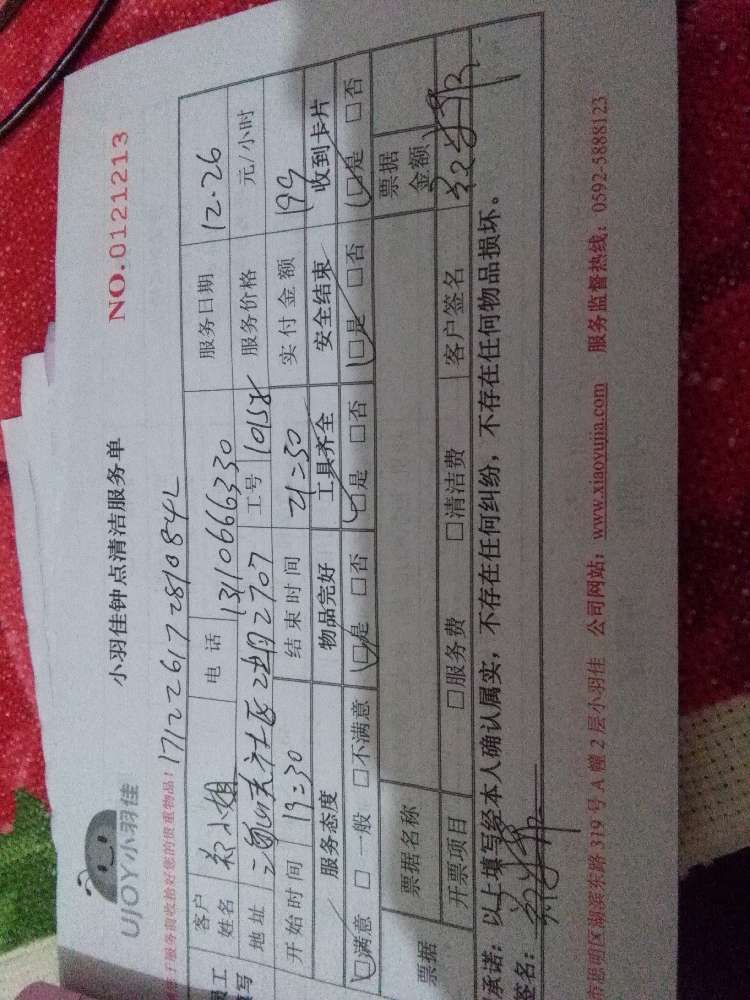 UJOY小羽佳
小羽佳钟点清洁服务单
NO.0121213
171226172810842
客户姓名 郑小姐 电话 13110666330 服务日期 12.26
地址 2期2707 工号 10158 服务价格 元/小时
开始时间 19:30 结束时间 21:30 实付金额 199
服务态度 物品完好 工具齐全 安全结束 收到卡片
□满意 □一般 □不满意 □是 □否 □是 □否 □是 □否 □是 □否
票据 票据名称 票据金额
开票项目 □服务费 □清洁费 客户签名
承诺：以上填写经本人确认属实，不存在任何纠纷，不存在任何物品损坏。
签名：
思明区湖滨东路319号A幢2层小羽佳 公司网站：www.xiaoyujia.com 服务监督热线：0592-5888123